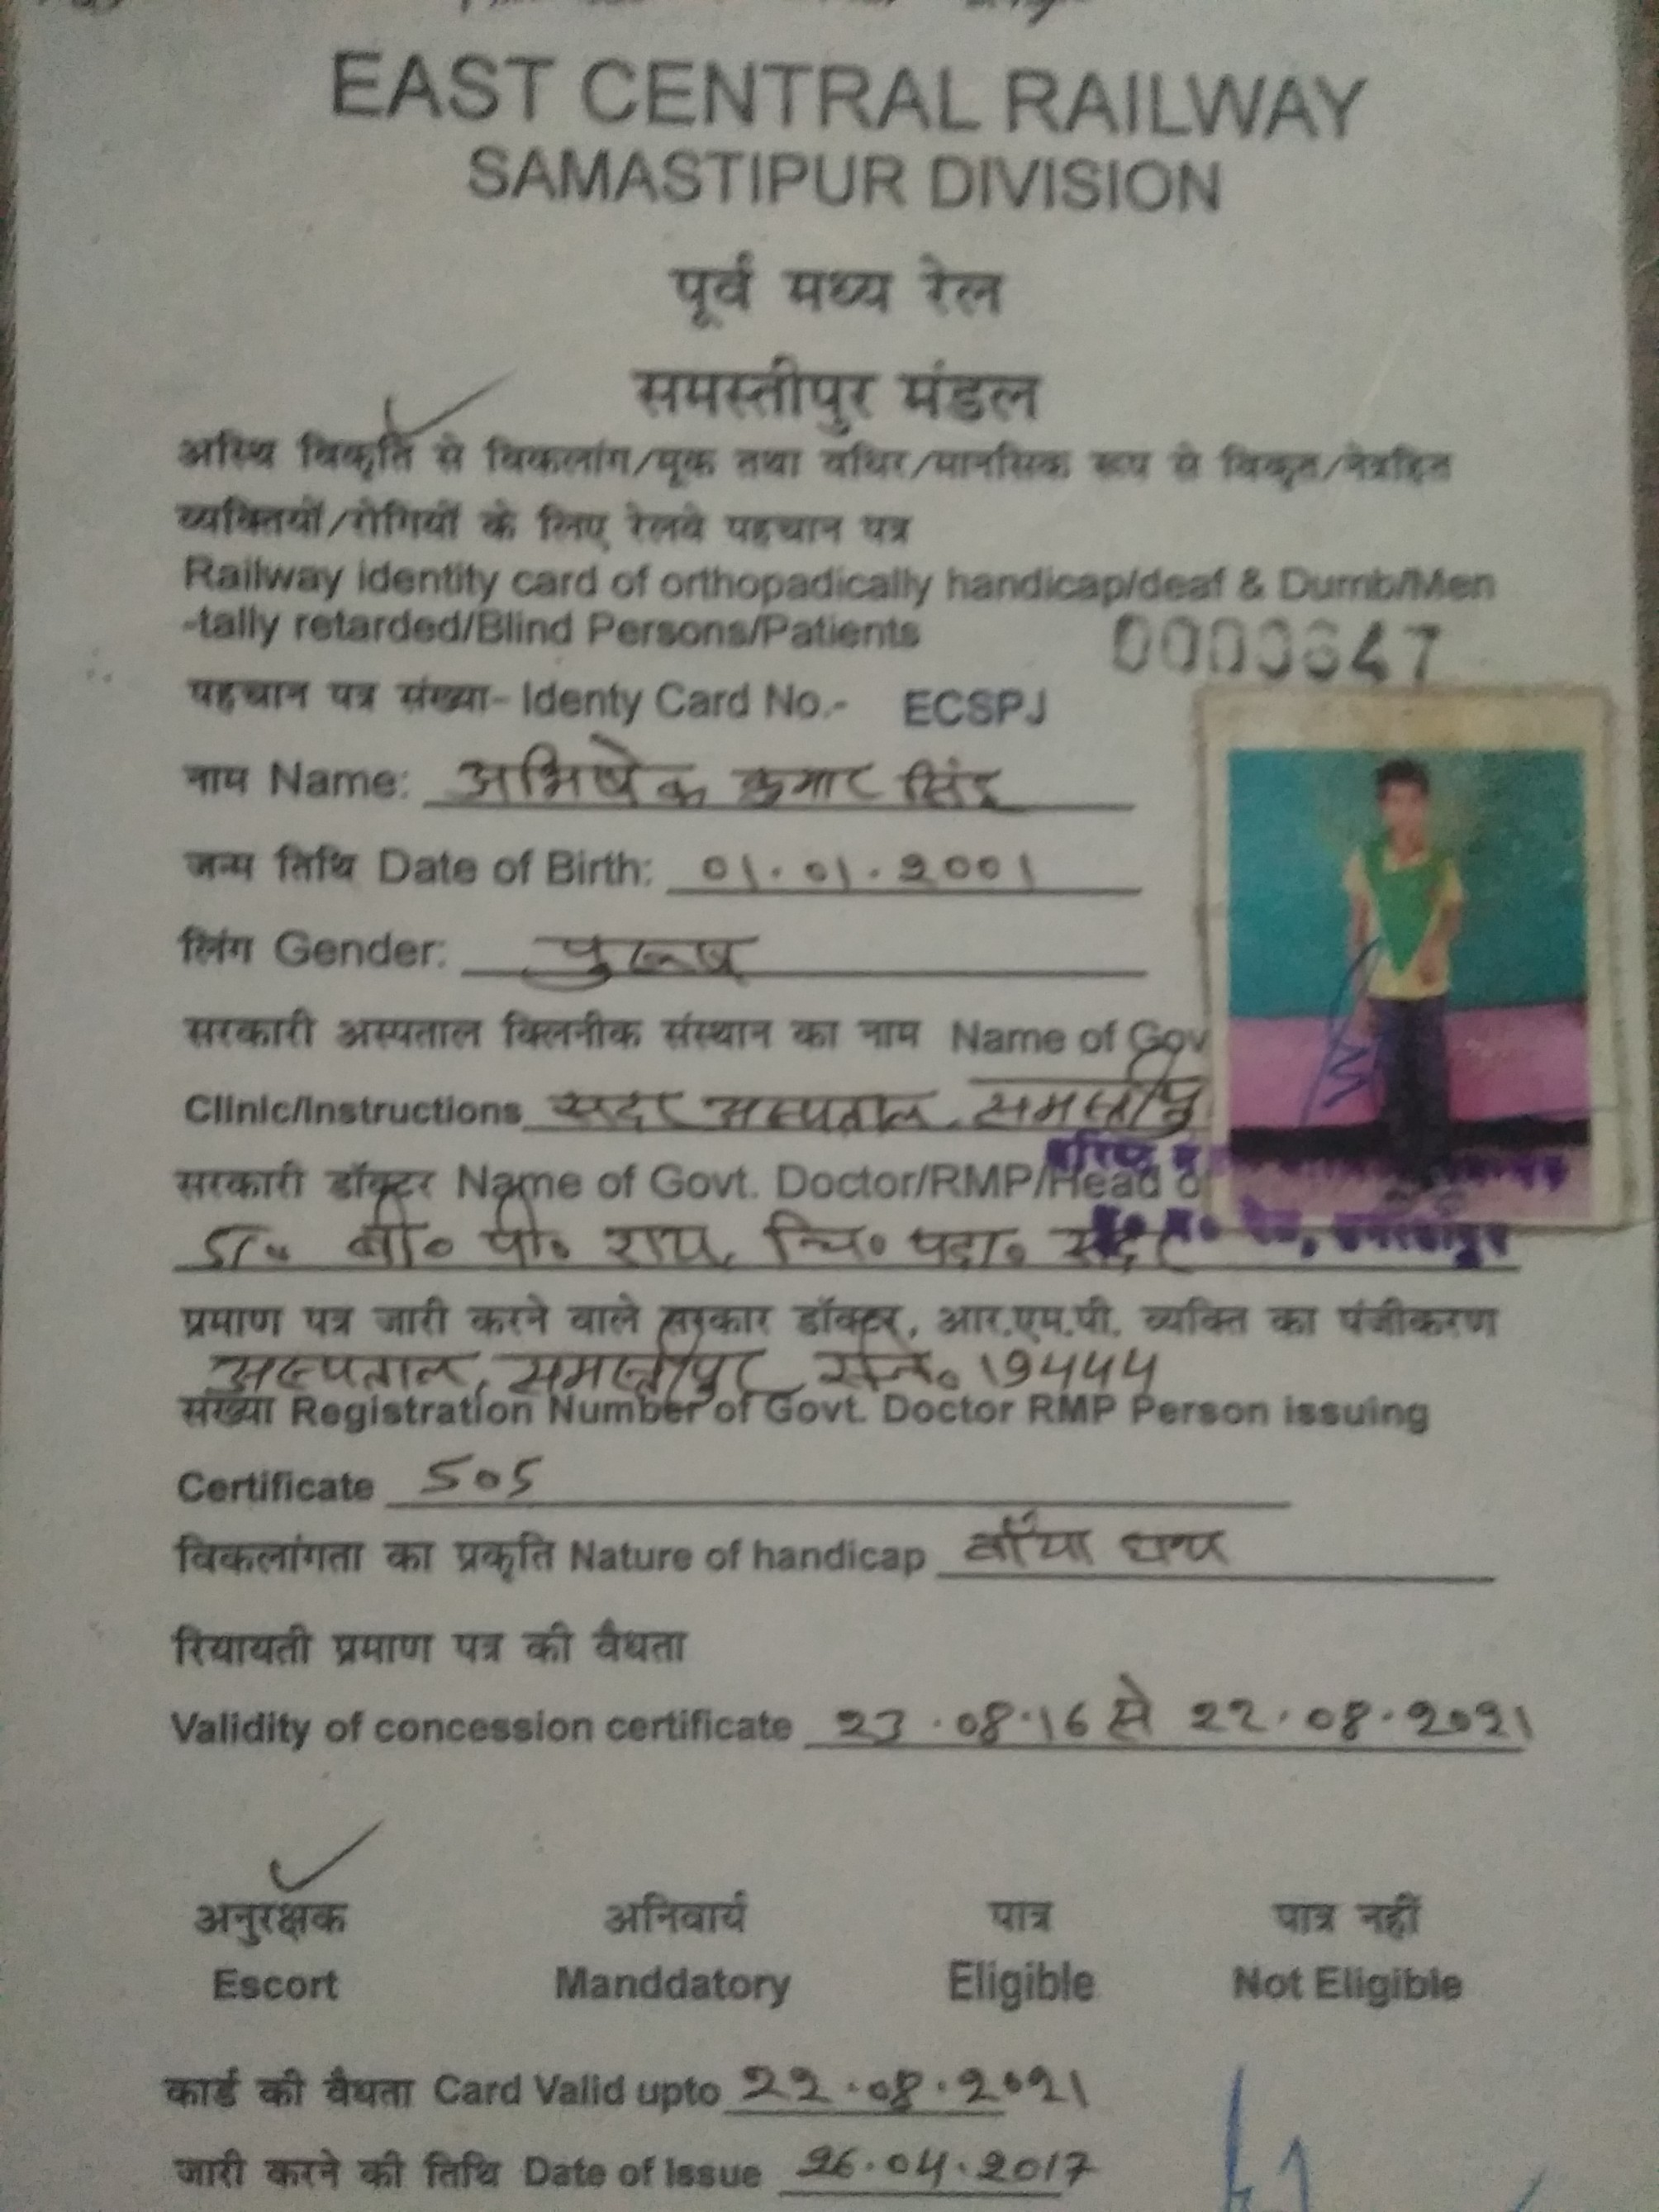 EAST CENTRAL RAILWAY
SAMASTIPUR DIVISION
पूर्व मध्य रेल
समस्तीपुर मंडल
अस्थि विकृति से विकलांग/मूक तथा वधिर/मानसिक रूप से विकृत/नेत्रहित
व्यक्तियों/रोगियों के लिए रेलवे पहचान पत्र
Railway identity card of orthopadically handicap/deaf & Dumb/Men
-tally retarded/Blind Persons/Patients
पहचान पत्र संख्या- Identy Card No.- ECSPJ
नाम Name: अभिषेक कुमार सिंह
जन्म तिथि Date of Birth: 01.01.2001
लिंग Gender: पुरूष
सरकारी अस्पताल क्लिनीक संस्थान का नाम Name of Gov
Clinic/Instructions सदर अस्पताल, समस्तीपु
सरकारी डॉक्टर Name of Govt. Doctor/RMP/Head o
डा० बी० पी० राय, चि० पदा० सदर
प्रमाण पत्र जारी करने वाले सरकार डॉक्टर, आर.एम.पी. व्यक्ति का पंजीकरण
अस्पताल, समस्तीपुर 19444
संख्या Registration Number of Govt. Doctor RMP Person issuing
Certificate 505
विकलांगता का प्रकृति Nature of handicap बाँया
रियायती प्रमाण पत्र की वैधता
Validity of concession certificate 23.08.16 से 22.08.2021
अनुरक्षक अनिवार्य पात्र पात्र नहीं
Escort Manddatory Eligible Not Eligible
कार्ड की वैधता Card Valid upto 22.08.2021
जारी करने की तिथि Date of Issue 26.04.2017